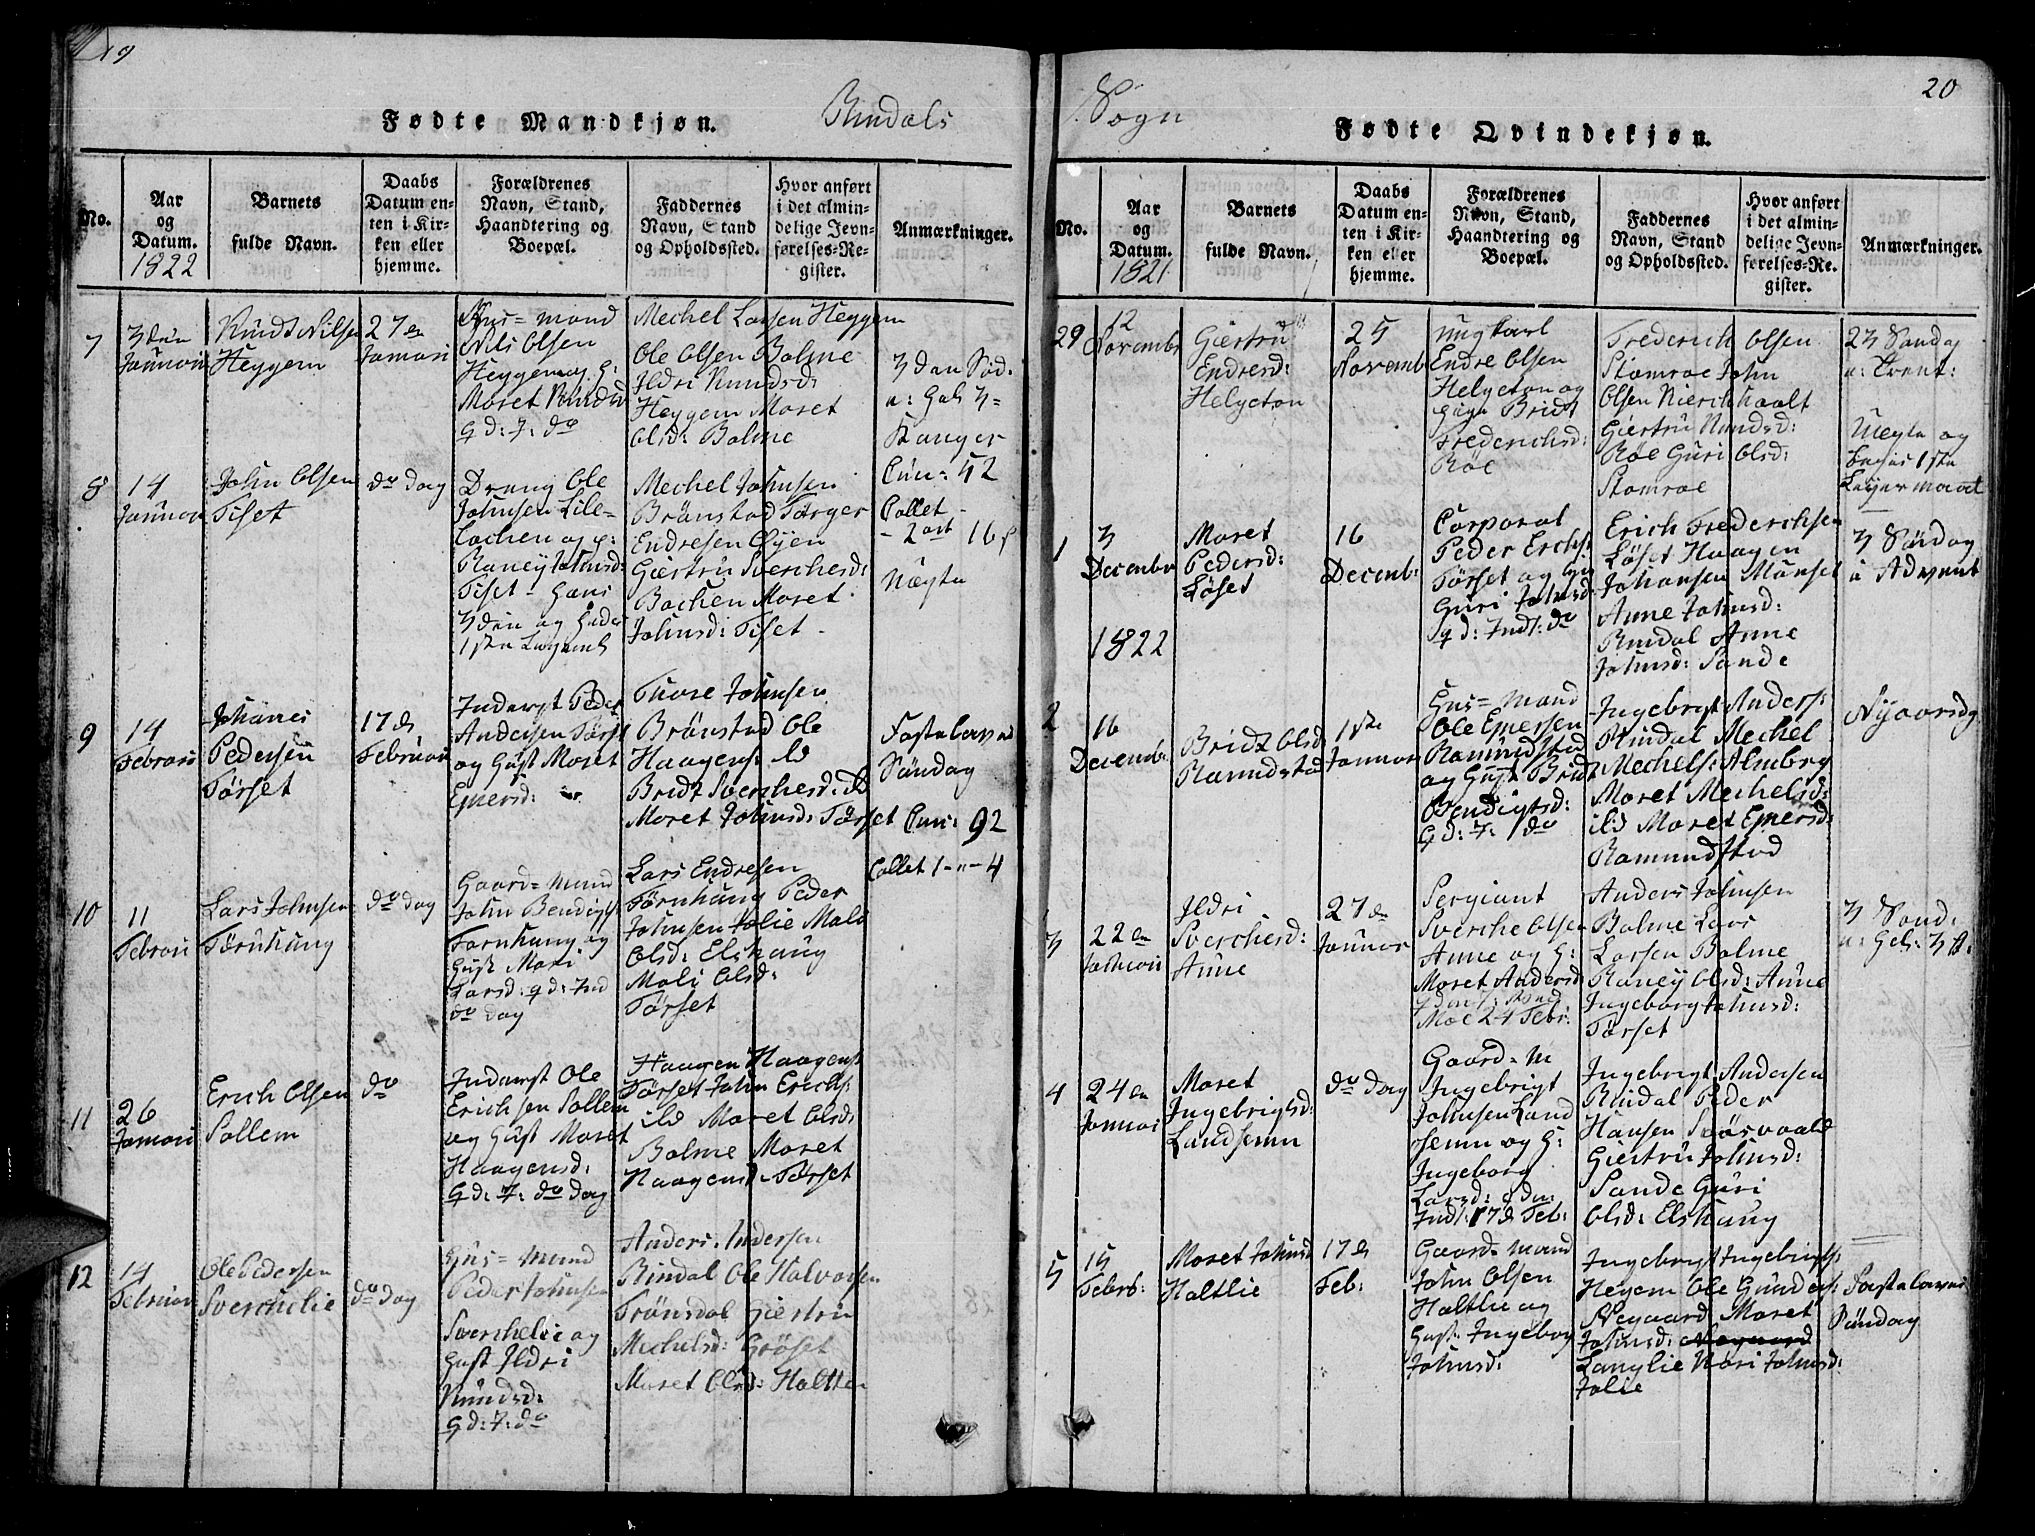 19
Fødte Mandkjøn.
Rindals
No.
Aar og Datum.
1822
Barnets fulde Navn.
Daabs Datum enten i Kirken eller hjemme.
Forældrenes Navn, Stand, Haandtering og Boepæl.
Faddernes Navn, Stand og Opholdssted.
Hvor anført i det almindelige Jevnførelses-Register.
Anmærkninger.
7
3den
Januari
Knudt Nilsen
Heggem
27en
Januari
Hus=mand
Nils Olsen
Heggem og H:
Moset Knudsd
G d: I: do
Mechel Larsen Heggem
Ole Olsen Bolme
Ildri Knudsd:
Heggem Moset
Olsd: Bolme
3dan Sød.
a: Hel: 3=
Konger
Cun: 52
Collet
- 2 ort 16 s
8
14
Januari
John Olsen
Tiset
do dag
Dreng Ole
Johnsen Lile=
Bachen og p:
Raney Johnsd:
Tiset - Hans
3den og Hendes
1ste Leyerml
Mechel Johnsen
Brønstad Torger
Endresen Øyen
Giertru Sverchesd:
Bachen Moset
Johnsd: Tiset -
Uægte
9
14
Februari
Johanes
Pedersen
Tørset
17d
Februari
Inderst Peder
Andersen Tørset
og Hust Moset
Ejnersd:
Thore Johnsen
Brønstad Ole
Haagens: ild
Bridt Sverchesd: ild
Moset Johnsd: Tørset
Fastelavns
Søndag
Cun: 92
Collet 1-"-4
10
11
Februari
Lars Johnsen
Tørnhaug
do dag
Gaard=mand
John Bendigts:
Tørnhaug og
Hust Mari
Larsd: g d: Ind
do dag
Lars Endresen
Tørnhaug Peder
Johnsen Jolie Mali
Olsd: Elshaug
Mali Olsd:
Tørset
11
26
Januari
Erich Olsen
Sollem
do
Inderst Ole
Erichsen Sollem
og Hust Moset
Haagensd:
G d: I: do dag
Haagen Haagens:
Tørset John Erichs:
ild Moset Olsd:
Bolme Moset
Haagensd Tørset
12
14
Februari
Ole Pedersen
Sverchelie
do dag
Huus=mand
Peder Johnsen
Sverchelie og
Hust Ildri
Knudsd:
G d: I: do
Anders Andersen
Rindal Ole Halvorsen
Trønsdal Giertru
Mechelsd: Grøset
Moset Olsd: Holtten
20
Sogn
Fødte Qvindekjøn.
No.
Aar og Datum.
1821
Barnets fulde Navn.
Daabs Datum enten i Kirken eller hjemme.
Forældrenes Navn, Stand, Haandtering og Boepæl.
Faddernes Navn, Stand og Opholdssted.
Hvor anført i det almindelige Jevnførelses-Register.
Anmærkninger.
29
12
Novembr
Giertru
Endresd:
Helgeton
25
Novemb
Ungkarl
Endre Olsen
Helgeton og
Pige Bridt
Frederichsd:
Røe
Frederich Olsen
Stomroe John
Olsen Nierchhaalt
Giertru Knudsd:
Røe Guri Olsd:
Stomroe
23 Søndag
a: Trent:
Uægte og
begges 1ste
Leyermaal
1
3
Decembr
Moset
Pedersd:
Løset
16
Decemb:
Corporal
Peder Erichs:
Tørset og
Guri Johnsd:
g d: Indl: do
Erich Frederichsen
Løset Haagen
Johansen Mønset
Anne Johnsd:
Rindal Anne
Johnsd: Sande
3 Søndag
a Advent
1822
2
16
Decemb:
Bridt Olsd
Ramundstad
1ste
Januar
Huus=mand
Ole Ejnersen
Ramundstad
og Hust Bridt
Bendigtsd:
G d: I: do
Ingebrigt Anders:
Rindal Mechel
Mechels: Almberg
Moset Mechelsd:
ild Moset Ejnersd:
Ramundstad
Nyaarsdg
3
22en
Januari
Ildri
Sverchesd:
Aune
27de
Januar
Sergiant
Sverche Olsen
Aune og H:
Moset Andersd
Moe 24 Febr:
Anders Johnsen
Bolme Lars
Larsen Bolme
Raney Olsd: Aune
Ingeborg Johnsd:
Tørset
3 Sønd:
a: Hel: 3 K:
4
24en
Januar
Moset
Ingebrigtsd:
Landsemn
do dag
Gaard=M
Ingebrigt
Johnsen Land
semn og H:
Ingeborg
Larsd: g d:
Indl: 17d Feb:
Ingebrigt Andersen
Rindal Peder
Hansen Sørsvaald
Giertru Johnsd:
Sande Guri
Olsd: Elshaug
5
15
Febrb:
Moset Johnsd
Holtlie
17d
Feb:
Gaard=mand
John Olsen
Holtlie og
Hust Ingeborg
Johnsd:
Ingebrigt Ingebrigts:
Heggem Ole Gunders:
Negaard Moset
Johnsd: Negaard
Langlie Mari Johnsd:
Jolie
Fastelavns
Søndag